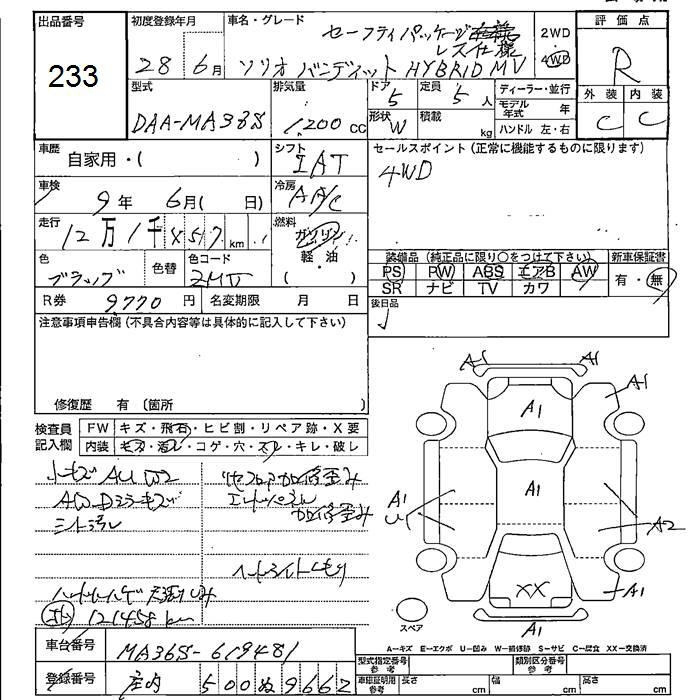 出品番号
233
初度登録年月
28年 6月
車名・グレード
セーフティパッケージ
レス仕様
ソリオ バンディット HYBRID MV
2WD
4WD
評価点
R
外装 内装
C C
型式
DAA-MA36S
排気量
1,200 cc
ドア 5
定員 5 人
形状 W
積載 kg
ディーラー・並行
モデル年式 年
ハンドル 左・右
車歴
自家用・( )
シフト
IAT
セールスポイント(正常に機能するものに限ります)
4WD
車検
9年 6月( 日)
冷房
AAC
走行
12万1千457km
燃料
ガソリン
軽・油
( )
色
ブラック
色替
色コード
ZMV
装備品(純正品に限り○をつけて下さい)
新車保証書
PS PW ABS エアB AW
有・無
SR ナビ TV カワ
R券 9770 円
名変期限 月 日
後日品
注意事項申告欄(不具合内容等は具体的に記入して下さい)
修復歴 有 (箇所 )
検査員
記入欄
FW キズ・飛石・ヒビ割・リペア跡・X要
内装 キズ・汚レ・コゲ・穴・スレ・キレ・破レ
小キズ AU W2
AWDミラーキズ
シート汚レ
リヤフロア加修歪み
エンドパネル
加修歪み
ヘッドライトくもり
121458km
車台番号
MA36S-619481
登録番号
庄内 500 ぬ 9662
A1 A1
A1 A1
A1
A1
U1
A2
XX
A1
A1
スペア
A-キズ E-エクボ U-凹み W-補修跡 S-サビ C-腐食 XX-交換済
型式指定番号
参考
類別区分番号
参考
車庫証明用
参考
長さ cm
幅 cm
高さ cm